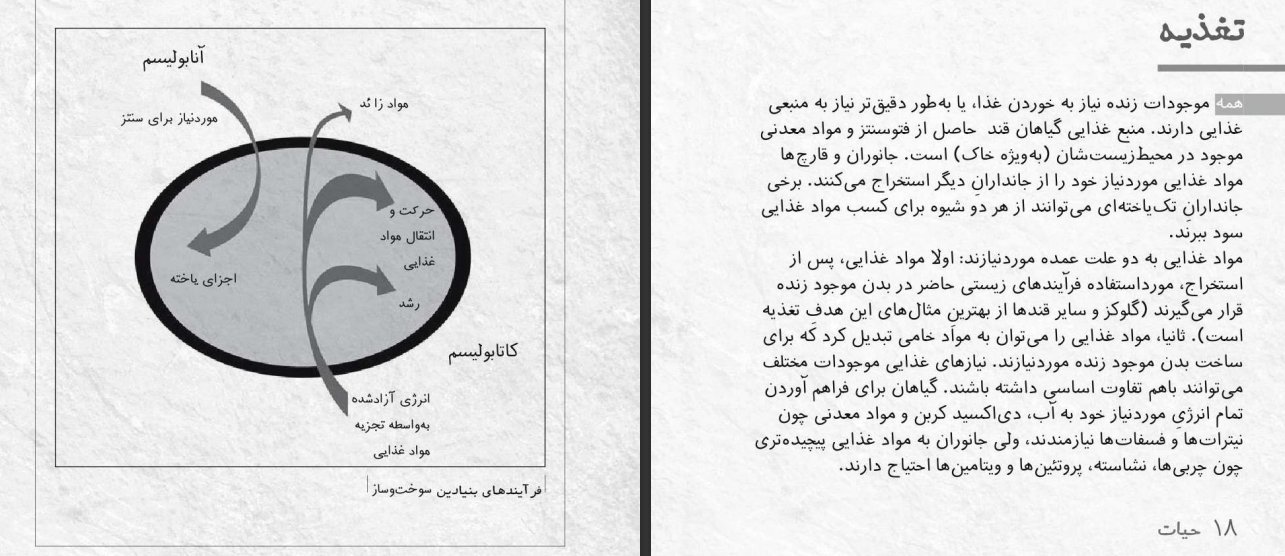 تغذیه
همه موجودات زنده نیاز به خوردن غذا، یا به‌طور دقیق‌تر نیاز به منبعی
غذایی دارند. منبع غذایی گیاهان قند حاصل از فتوسنتز و مواد معدنی
موجود در محیط‌زیست‌شان (به‌ویژه خاک) است. جانوران و قارچ‌ها
مواد غذایی موردنیاز خود را از جاندارانِ دیگر استخراج می‌کنند. برخی
جاندارانِ تک‌یاخته‌ای می‌توانند از هر دو شیوه برای کسب مواد غذایی
سود ببرند.
مواد غذایی به دو علت عمده موردنیازند: اولا مواد غذایی، پس از
استخراج، مورداستفاده فرآیندهای زیستی حاضر در بدن موجود زنده
قرار می‌گیرند (گلوکز و سایر قندها از بهترین مثال‌های این هدفِ تغذیه
است). ثانیا، مواد غذایی را می‌توان به موادِ خامی تبدیل کرد که برای
ساخت بدن موجود زنده موردنیازند. نیازهای غذایی موجودات مختلف
می‌توانند باهم تفاوت اساسی داشته باشند. گیاهان برای فراهم آوردن
تمام انرژیِ موردنیاز خود به آب، دی‌اکسید کربن و مواد معدنی چون
نیترات‌ها و فسفات‌ها نیازمندند، ولی جانوران به مواد غذایی پیچیده‌تری
چون چربی‌ها، نشاسته، پروتئین‌ها و ویتامین‌ها احتیاج دارند.
۱۸ حیات
آنابولیسم
موردنیاز برای سنتز
مواد زائد
حرکت و
انتقال مواد
غذایی
اجزای یاخته
رشد
کاتابولیسم
انرژی آزادشده
به‌واسطه تجزیه
مواد غذایی
فرآیندهای بنیادین سوخت‌وساز